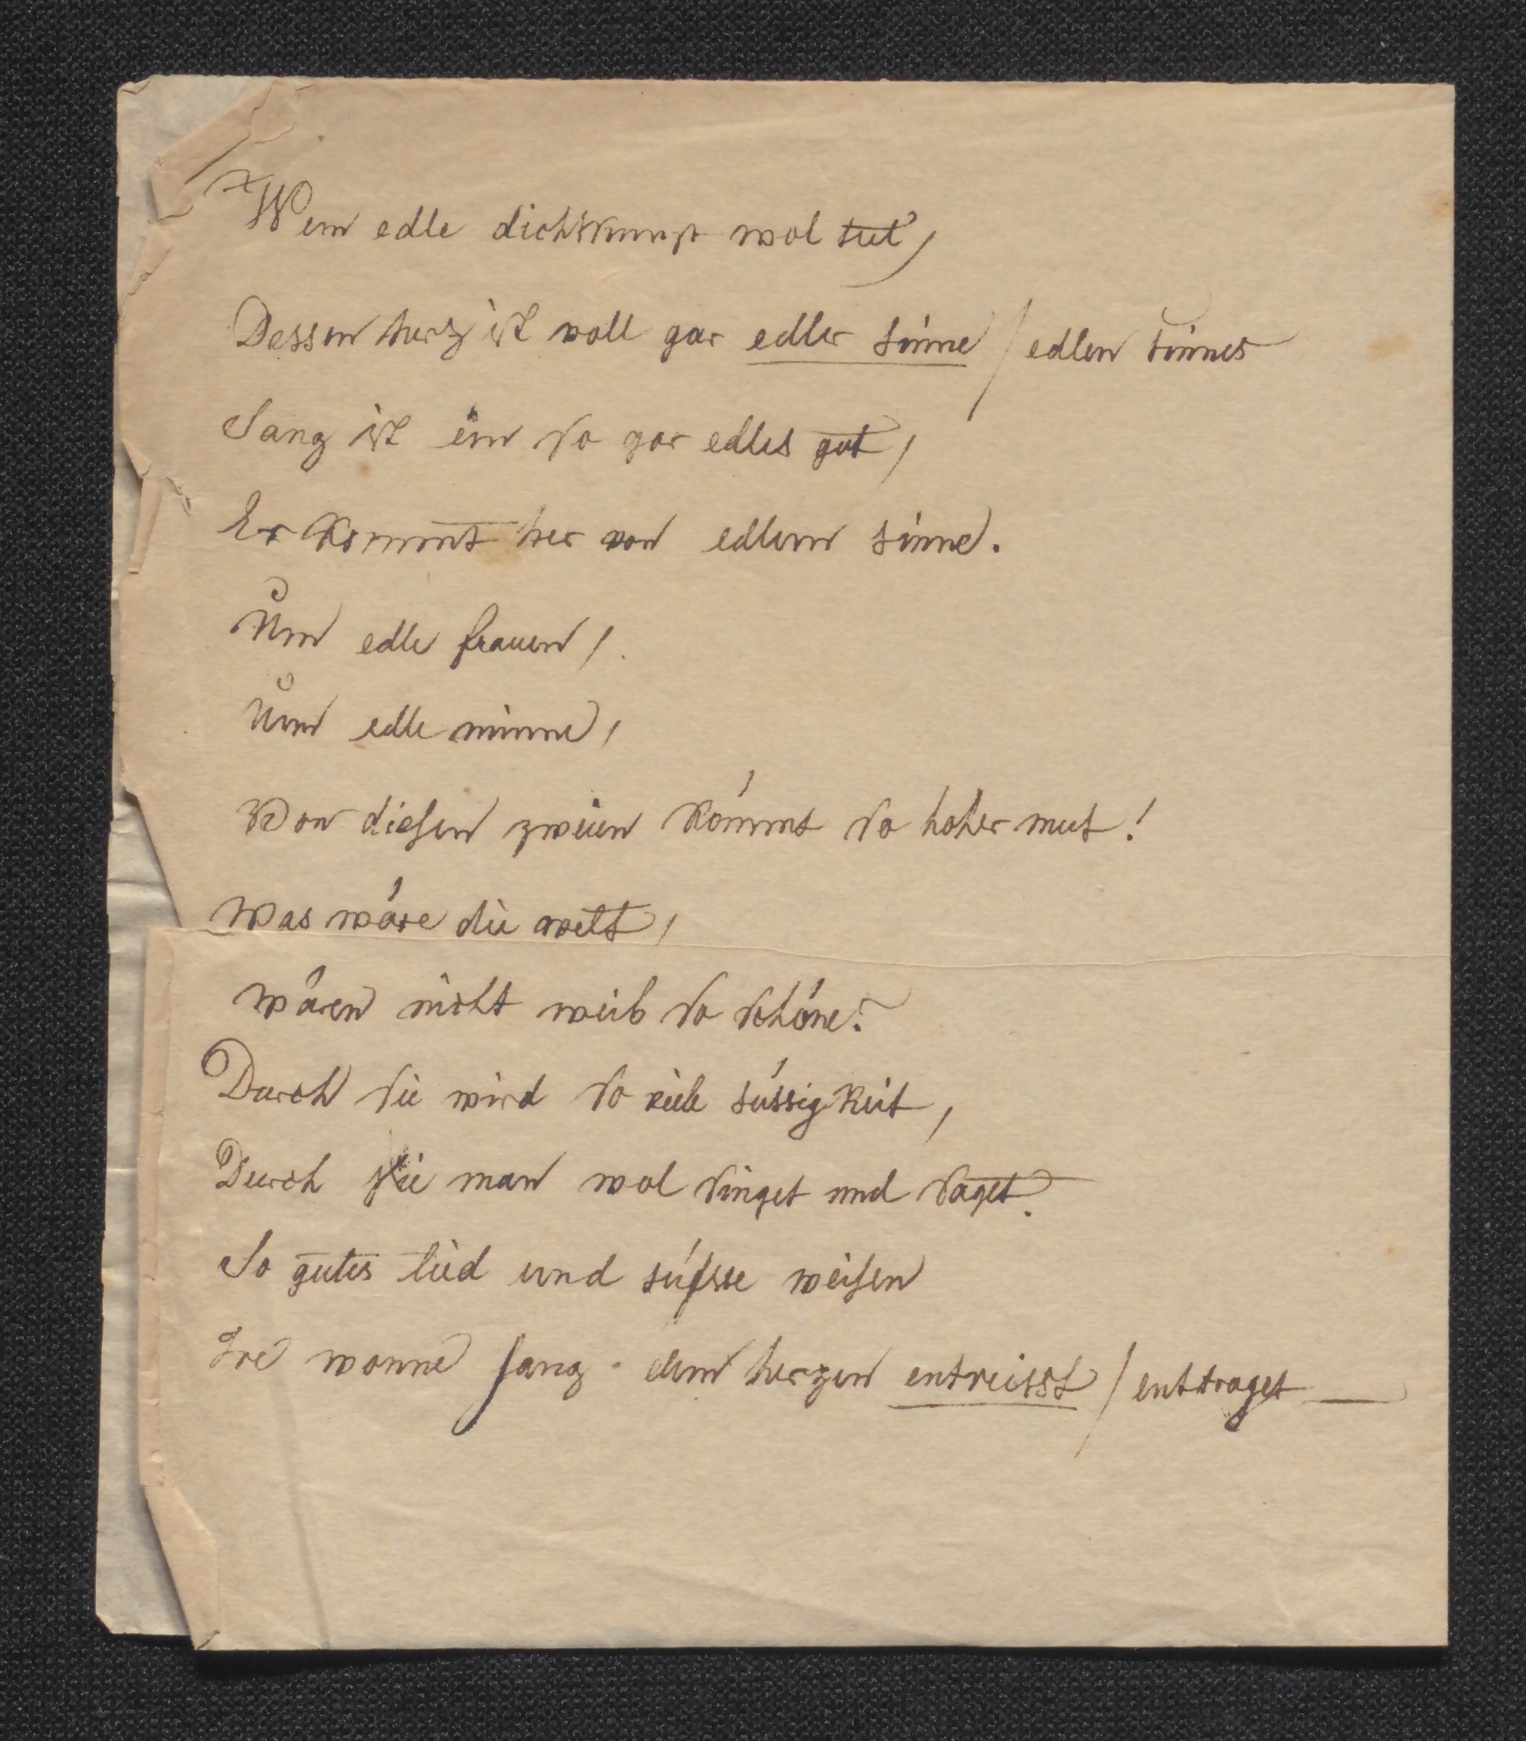 Wem edle dichtkunst wol tut,
Dessen herz ist voll gar edler sinne / edlen sinnes
Sang ist ein so gar edles gut,
Er kommt her von edlem sinne.
Um edle frauen,
Um edle minne,
Von diesen zweien kömmt so hoher mut!
Was wäre die welt,
wären nicht weib so schöne?
Durch sie wird so viele süssigkeit,
Durch sie man wol singet und saget.
So gutes lied und süsse weisen
Ire wonne sang dem herzen entreisst / enttraget